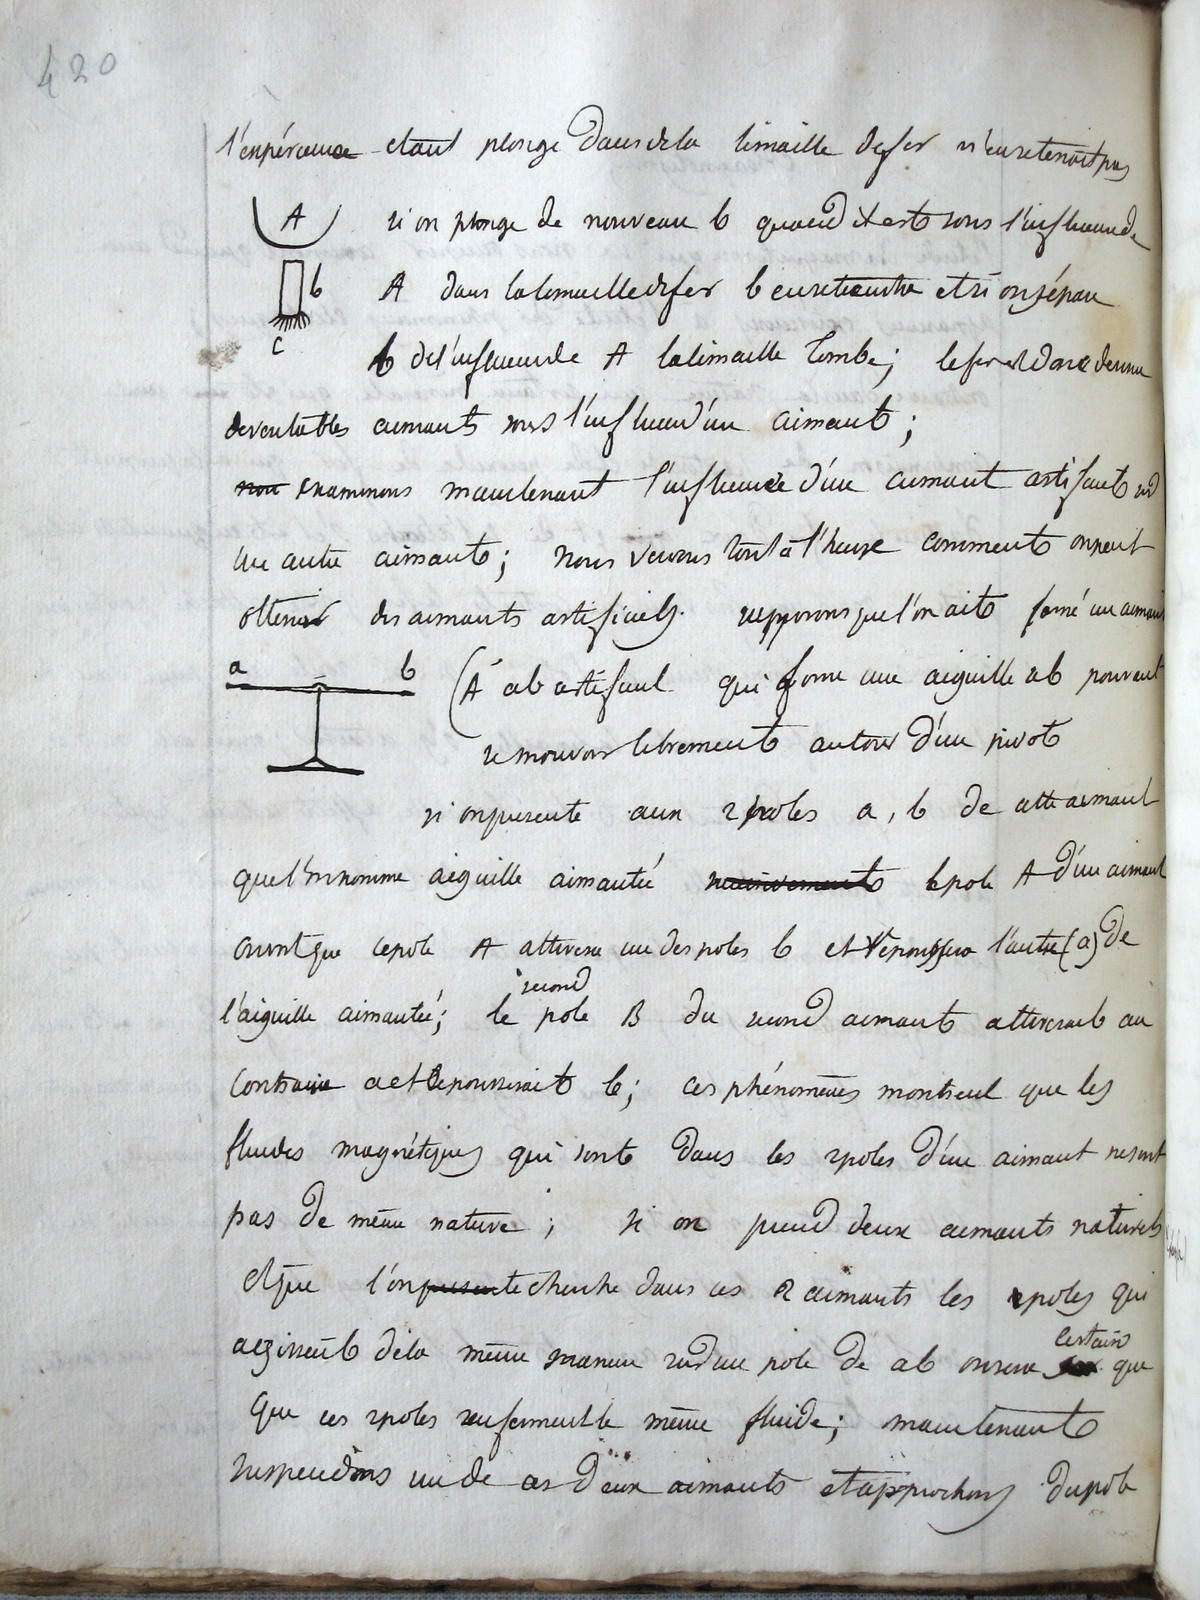 420
l'expérience etant plongé dans de la limaille de fer n'en retenoit pas
A si on plonge de nouveau b quand il est sous l'influence de
b A dans la limaille de fer b en retiendra et si on sépare
c b de l'influence de A la limaille tombe; le fer est donc devenu
de veritables aimants sous l'influence d'un aimant;
examinons maintenant l'influence d'un aimant artificiel sur
un autre aimant; nous verrons tout à l'heure comment on peut
obtenir des aimants artificiels. supposons que l'on ait formé un aimant
a b (A ab artificiel qui forme une aiguille ab pouvant
se mouvoir librement autour d'un pivot
si on presente aux 2 poles a, b de cette aimant
que l'on nomme aiguille aimantée le pole A d'un aimant
on voit que ce pole A attirera un des poles b et repoussera l'autre (a) de
second
l'aiguille aimantée; le pole B du second aimant attirerait au
contraire a et repousserait b; ces phénomènes montrent que les
fluides magnétiques qui sont dans les 2 poles d'un aimant ne sont
pas de même nature; si on prend deux aimants naturels
et que l'on cherche dans ces 2 aimants les 2 poles qui
certain
agissent de la même maniere sur un pole de ab on sera que
que ces 2 poles renferment le même fluide; maintenant
suspendons un de ces deux aimants et approchons du pole